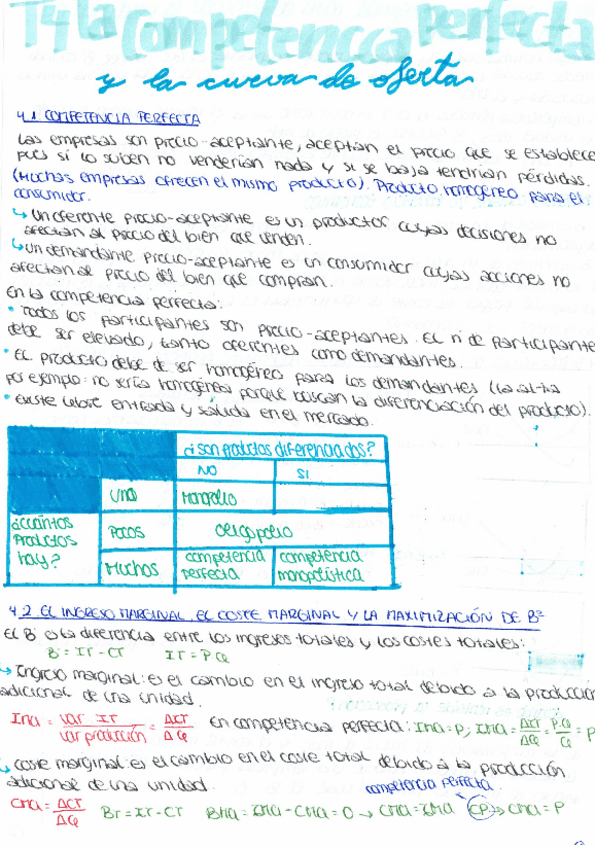 T4 la competencia perfecta
y la curva de oferta
4.1 COMPETENCIA PERFECTA
Las empresas son precio-aceptante, aceptan el precio que se establece
pues si lo suben no venderían nada y si se baja tendrían pérdidas.
(Muchas empresas ofrecen el mismo producto). Producto homogéneo para el
consumidor.
↳ Un oferente precio-aceptante es un productor cuyas decisiones no
afectan al precio del bien que venden.
↳ Un demandante precio-aceptante es un consumidor cuyas acciones no
afectan al precio del bien que compran.
En la competencia perfecta:
• Todos los participantes son precio-aceptantes. El nº de participante
debe ser elevado, tanto oferentes como demandantes.
• El producto debe de ser homogéneo para los demandantes (la
por ejemplo: no sería homogénea porque buscan la diferenciación del producto).
• Existe libre entrada y salida en el mercado.
¿son productos diferenciados?
NO SI
Uno Monopolio
¿cuántos Productos hay?
Pocos Oligopolio
Muchos competencia perfecta competencia monopolística
4.2 EL INGRESO MARGINAL, EL COSTE MARGINAL Y LA MAXIMIZACIÓN DE Bº
El B es la diferencia entre los ingresos totales y los costes totales:
B = IT - CT IT = P·Q
↳ Ingreso marginal: es el cambio en el ingreso total debido a la producción
adicional de una unidad.
IMa = var IT / var producción = ΔIT / ΔQ en competencia perfecta: IMa = P, IMa = ΔIT / ΔQ = P·Q / Q = P
↳ Coste marginal: es el cambio en el coste total debido a la producción
adicional de una unidad.
competencia perfecta
CMa = ΔCT / ΔQ BT = IT - CT BMa = IMa - CMa = 0 → CMa = IMa CP → CMa = P